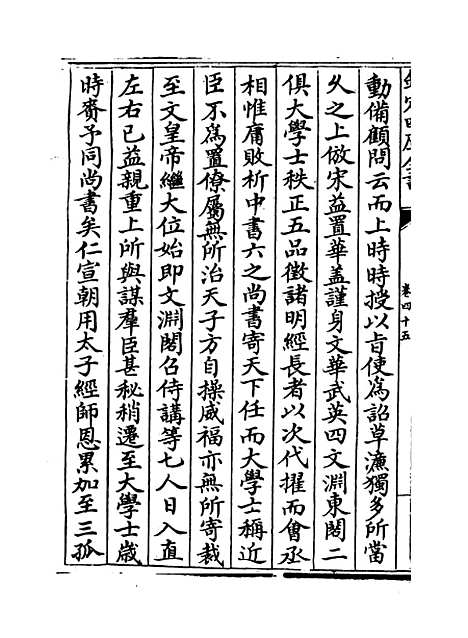 欽定四庫全書
卷四十五
動備顧問云而上時時授以旨使為詔草濂獨多所當
久之上倣宋益置華盖謹身文華武英四文淵東閣二
俱大學士秩正五品徵諸明經長者以次代擢而會丞
相惟庸敗析中書六之尚書寄天下任而大學士稱近
臣不為置僚屬無所治天子方自操威福亦無所寄裁
至文皇帝繼大位始即文淵閣召侍講等七人日入直
左右已益親重上所與謀羣臣甚秘稍遷至大學士歲
時賚予同尚書矣仁宣朝用太子經師恩累加至三孤